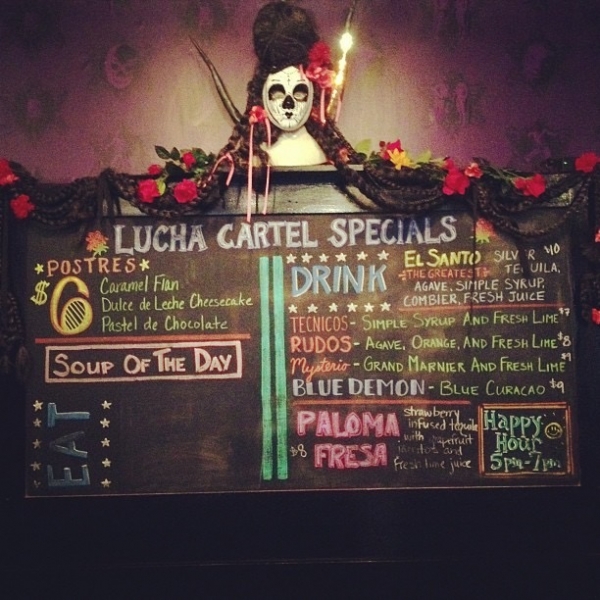 LUCHA CARTEL SPECIALS
POSTRES
$6
Caramel Flan
Dulce de Leche Cheesecake
Pastel de Chocolate
SOUP OF THE DAY
EAT
DRINK
EL SANTO SILVER $10
THE GREATEST TEQUILA,
AGAVE, SIMPLE SYRUP,
COMBIER, FRESH JUICE
TECNICOS - SIMPLE SYRUP AND FRESH LIME $7
RUDOS - AGAVE, ORANGE, AND FRESH LIME $8
Mysterio - GRAND MARNIER AND FRESH LIME $9
BLUE DEMON - BLUE CURACAO $9
PALOMA
FRESA
$8
strawberry
infused tequila
with grapefruit
and
fresh lime juice
Happy
Hour
5pm-7pm